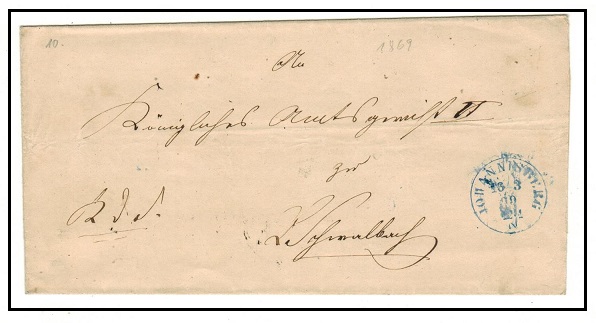 10.
1869
An
Königliches Amtsgericht II
zu
Schwalbach
JOHANNISBERG